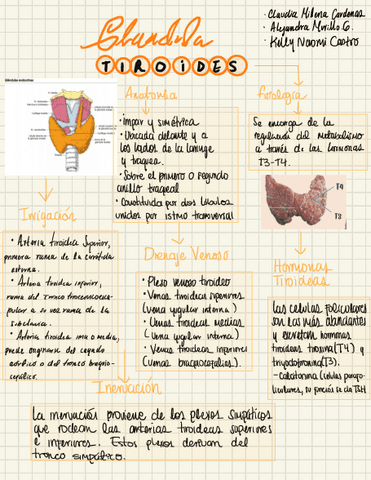 · Claudia Milena Cardenas
· Alejandra Murillo G.
· Kelly Naomi Castro
Glandula
TIROIDES
Anatomia
· Impar y simétrica
· Ubicada delante y a
los lados de la laringe
y traquea.
· Sobre el primero o segundo
anillo traqueal
· Constituida por dos lóbulos
unidos por istmo transversal
Fisiología
Se encarga de la
regulación del metabolismo
a través de las hormonas
T3-T4.
T4
T3
Glándulas endocrinas
Irrigación
· Arteria tiroidea Superior,
primera rama de la carótida
externa.
· Arteria tiroidea inferior,
rama del tronco
a su vez rama de la
subclavia.
· Arteria tiroidea ima o media,
puede originarse del cayado
aórtico o del tronco braquio-
cefálico.
Drenaje Venoso
· Plexo venoso tiroideo
· Venas tiroideas superiores
(vena yugular interna)
· Venas tiroideas medias
(vena yugular interna)
· Venas tiroideas inferiores
(venas braquiocefalicas).
Hormonas
Tiroideas
Las celulas foliculares
son las más abundantes
y excretan hormonas
tiroideas tiroxina(T4) y
triyodotironina(T3).
- Calcitonina (celulas parafo-
liculares, su función es
Inervación
La inervación proviene de los plexos simpáticos
que rodean las arterias tiroideas superiores
e inferiores. Estos plexos derivan del
tronco simpático.